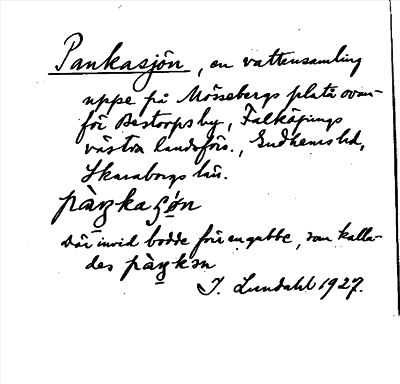 Pankasjön, en vattensamling
uppe på Mössebergs platå ovan-
för Bestorps by, Falköpings
västra landsförs., Gudhems hd,
Skaraborgs län.
pàŋkaʂø̀n
Där invid bodde förr en gubbe, som kalla-
des pàŋkən
I. Lundahl 1927.